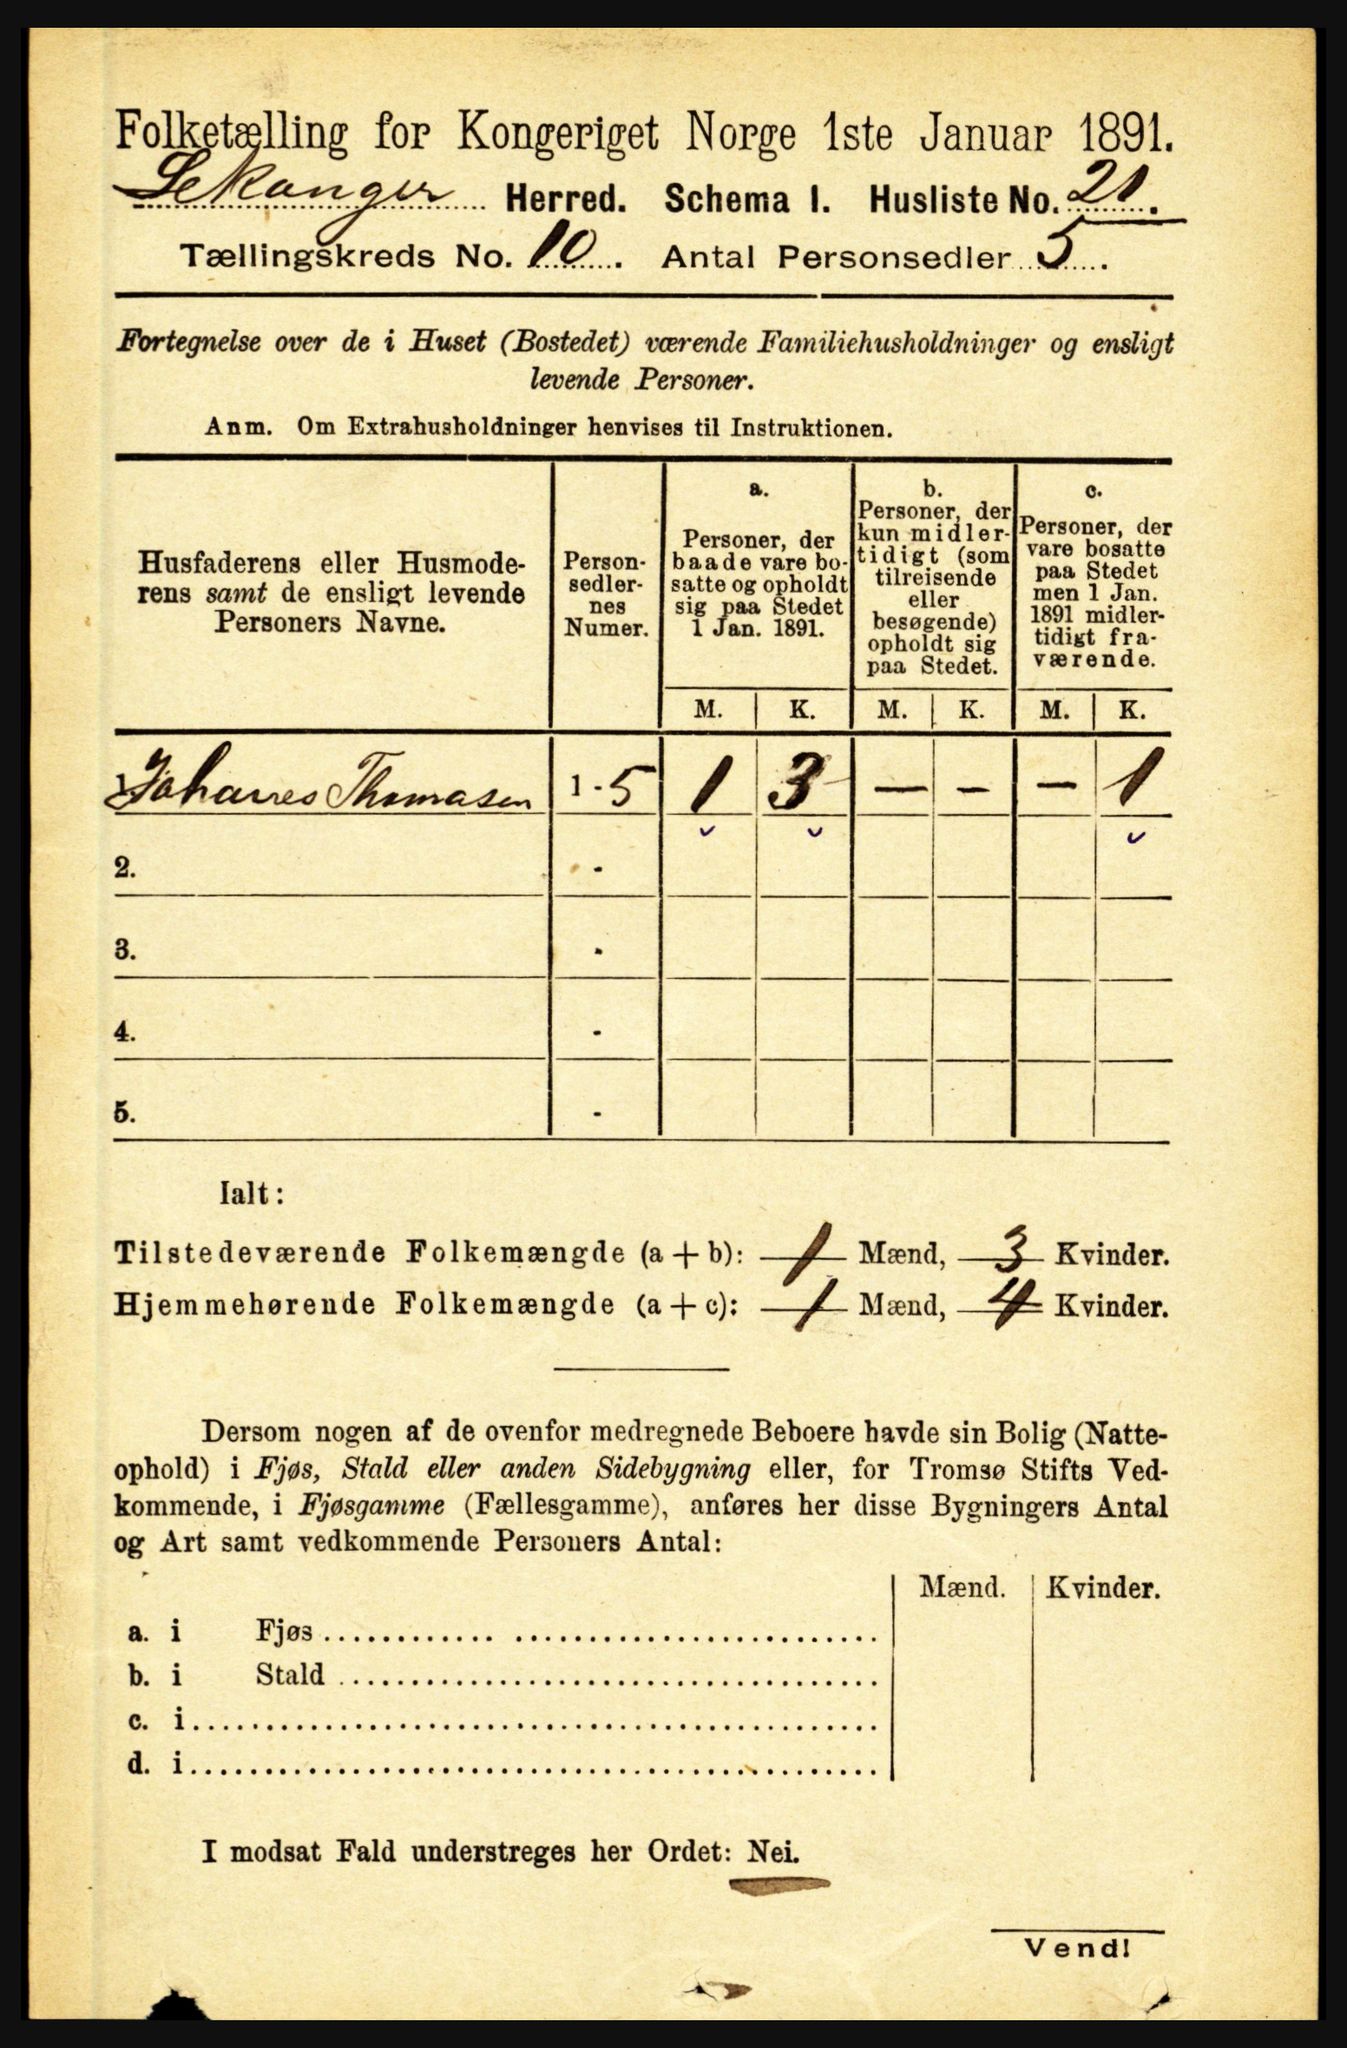 Folketælling for Kongeriget Norge 1ste Januar 1891.
Lekanger Herred. Schema I. Husliste No. 21.
Tællingskreds No. 10. Antal Personsedler 5.
Fortegnelse over de i Huset (Bostedet) værende Familiehusholdninger og ensligt
levende Personer.
Anm. Om Extrahusholdninger henvises til Instruktionen.
Husfaderens eller Husmode-
rens samt de ensligt levende
Personers Navne.
Person-
sedler-
nes
Numer.
a.
Personer, der
baade vare bo-
satte og opholdt
sig paa Stedet
1 Jan. 1891.
b.
Personer, der
kun midler-
tidigt (som
tilreisende
eller
besøgende)
opholdt sig
paa Stedet.
c.
Personer, der
vare bosatte
paa Stedet
men 1 Jan.
1891 midler-
tidigt fra-
værende.
M. K. M. K. M. K.
1. Johannes Thomasen 1 - 5 1 3 — - — 1
2. -
3. -
4. -
5. -
Ialt:
Tilstedeværende Folkemængde (a + b): 1 Mænd, 3 Kvinder.
Hjemmehørende Folkemængde (a + c): 1 Mænd, 4 Kvinder.
Dersom nogen af de ovenfor medregnede Beboere havde sin Bolig (Natte-
ophold) i Fjøs, Stald eller anden Sidebygning eller, for Tromsø Stifts Ved-
kommende, i Fjøsgamme (Fællesgamme), anføres her disse Bygningers Antal
og Art samt vedkommende Personers Antal:
Mænd. Kvinder.
a. i Fjøs
b. i Stald
c. i
d. i
I modsat Fald understreges her Ordet: Nei.
Vend!